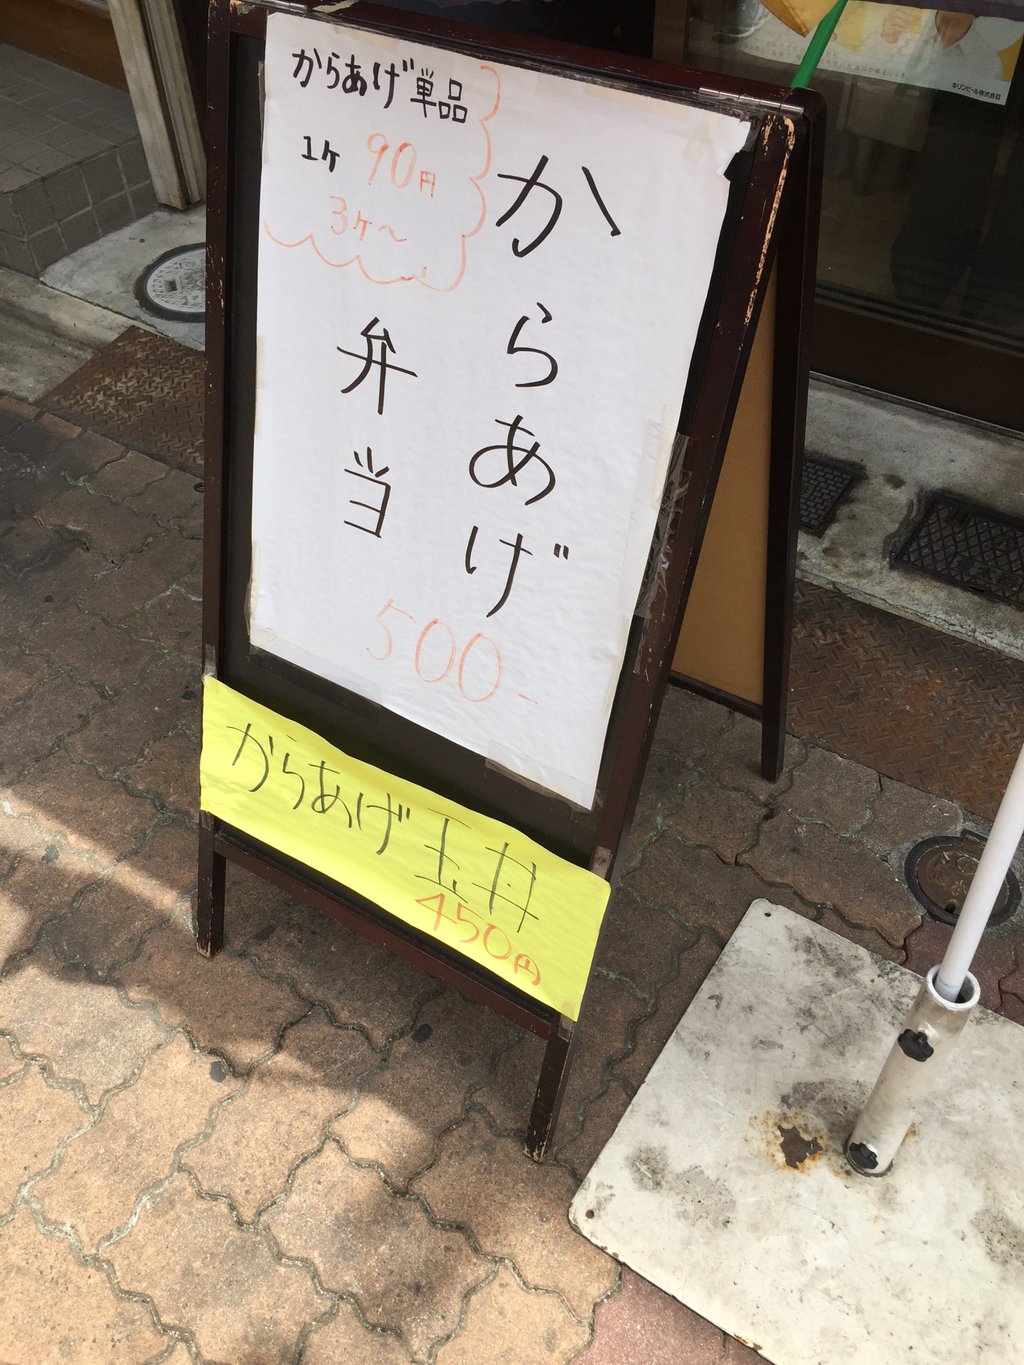 からあげ単品
1ケ 90円
3ケ〜
からあげ
弁当
500-
からあげ玉丼
450円
キリンビール株式会社